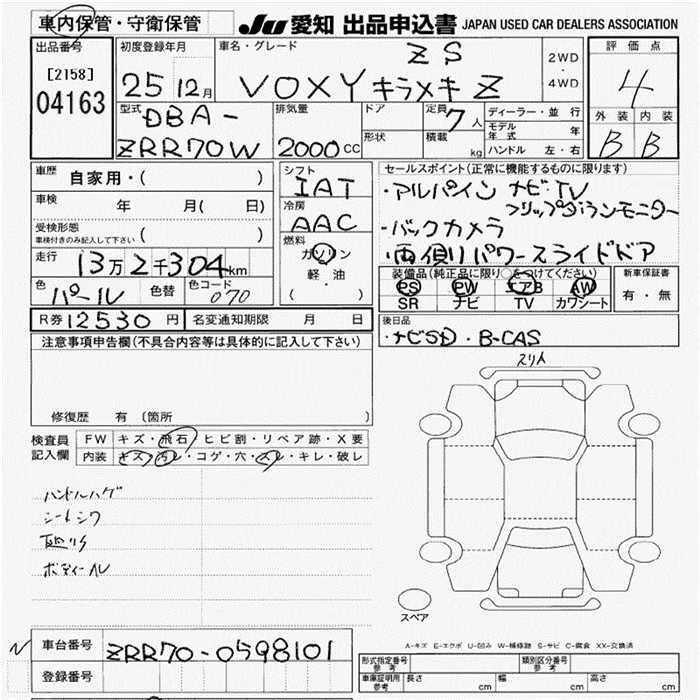 車内保管・守衛保管 JU 愛知 出品申込書 JAPAN USED CAR DEALERS ASSOCIATION
出品番号
[2158]
04163
初度登録年月
25 12月
車名・グレード
ZS
VOXY キラメキ Z
2WD
・
4WD
評価点
4
外装 内装
B B
型式
DBA-
ZRR70W
排気量
2000 CC
ドア
形状
定員
7人
積載
kg
ディーラー・並行
モデル年式 年
ハンドル 左・右
車歴
自家用・( )
車検 年 月( 日)
受検形態
車検付きのみ記入して下さい ( )
走行
13万2千304km
色
パール
色替
色コード
070
シフト
IAT
冷房
AAC
燃料
ガソリン
軽・油
( )
セールスポイント(正常に機能するものに限ります)
・アルパイン ナビTV
フリップダウンモニター
・バックカメラ
・両側パワースライドドア
装備品(純正品に限り○をつけてください)
PS PW エアB AW
SR ナビ TV カワシート
新車保証書
有・無
R券 12530円
名変通知期限 月 日
後日品
・ナビSD・B-CAS
注意事項申告欄(不具合内容等は具体的に記入して下さい)
修復歴 有 (箇所 )
検査員
記入欄
FW キズ・飛石・ヒビ割・リペア跡・X要
内装 キズ・汚レ・コゲ・穴・スレ・キレ・破レ
ハンドルハゲ
シートシワ
ボディーAU
スペア
A-キズ E-エクボ U-凹み W-補修跡 S-サビ C-腐食 XX-交換済
車台番号
ZRR70-0598101
登録番号
形式指定番号
参考
類別区分番号
参考
車庫証明用
参考
長さ cm 幅 cm 高さ cm